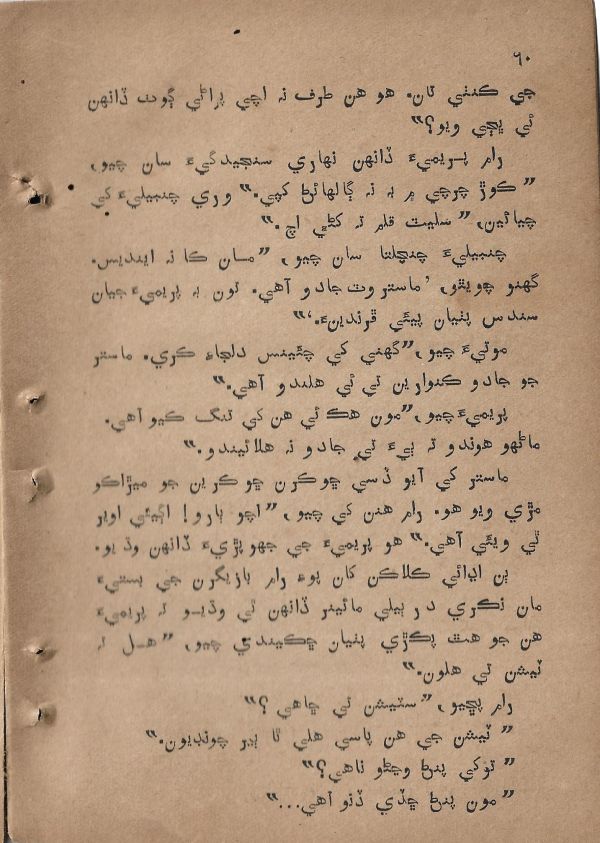 ٦٠
جي ڪنٺي تان. هو هن طرف نہ اچي پراڻي ڳوٺ ڏانهن
ئي ڀڄي ويو؟“
رام پريميءَ ڏانهن نهاري سنجيدگيءَ سان چيو،
”ڪوڙ چرچي ۾ بہ نہ ڳالهائڻ کپي.“ وري چنبيليءَ کي
چيائين، ”سليٽ قلم تہ کڻي اچ.“
چنبيليءَ چنچلتا سان چيو، ”مسان ڪا نہ اينديس.
گهنو چويٿو، ’ماستر وٽ جادو آهي. تون بہ پريميءَ جيان
سندس پٺيان پيئي ڦرندينءَ.‘“
موتيءَ چيو، ”گهني کي چٿينس دلڄاءِ ڪري. ماستر
جو جادو ڪنوارين تي ئي هلندو آهي.“
پريميءَ چيو، ”مون هڪ ئي هن کي تنگ ڪيو آهي.
ماڻهو هوندو تہ ٻيءَ تي جادو نہ هلائيندو.“
ماستر کي آيو ڏسي ڇوڪرن ڇوڪرين جو ميڙاڪو
مڙي ويو هو. رام هنن کي چيو، ”اچو ٻارو! اڳيئي اوير
ٿي ويئي آهي.“ هو پريميءَ جي جهوپڙيءَ ڏانهن وڌيو.
ٻن اڍائي ڪلاڪن کان پوءِ رام بازيگرن جي بستيءَ
مان نڪري در ٻيلي مائينر ڏانهن ئي وڌيو تہ پريميءَ
هن جو هٿ پڪڙي پٺيان ڇڪيندي چيو، ”هل تہ
ٽيشن تي هلون.“
رام پڇيو، ”سٽيشن تي ڇاهي؟“
”ٽيشن جي هن پاسي هلي ٿا ٻير چونڊيون.“
”توکي پنڻ وڃڻو ناهي؟“
”مون پنڻ ڇڏي ڏنو آهي...“